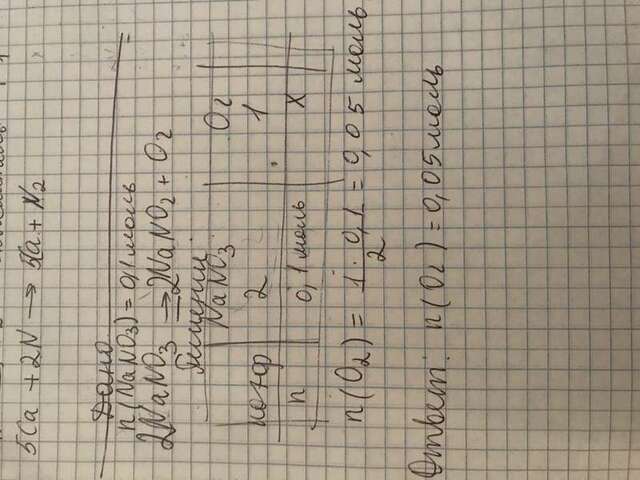 5Ca + 2N → 5Ca + N₂
Дано
n(NaNO₃) = 0,1 моль
2NaNO₃ ⇒ 2NaNO₂ + O₂
Решении:
NaNO₃ O₂
коэф 2 1
n 0,1 моль x
n(O₂) = 1 · 0,1 / 2 = 0,05 моль
Ответ: n(O₂) = 0,05 моль